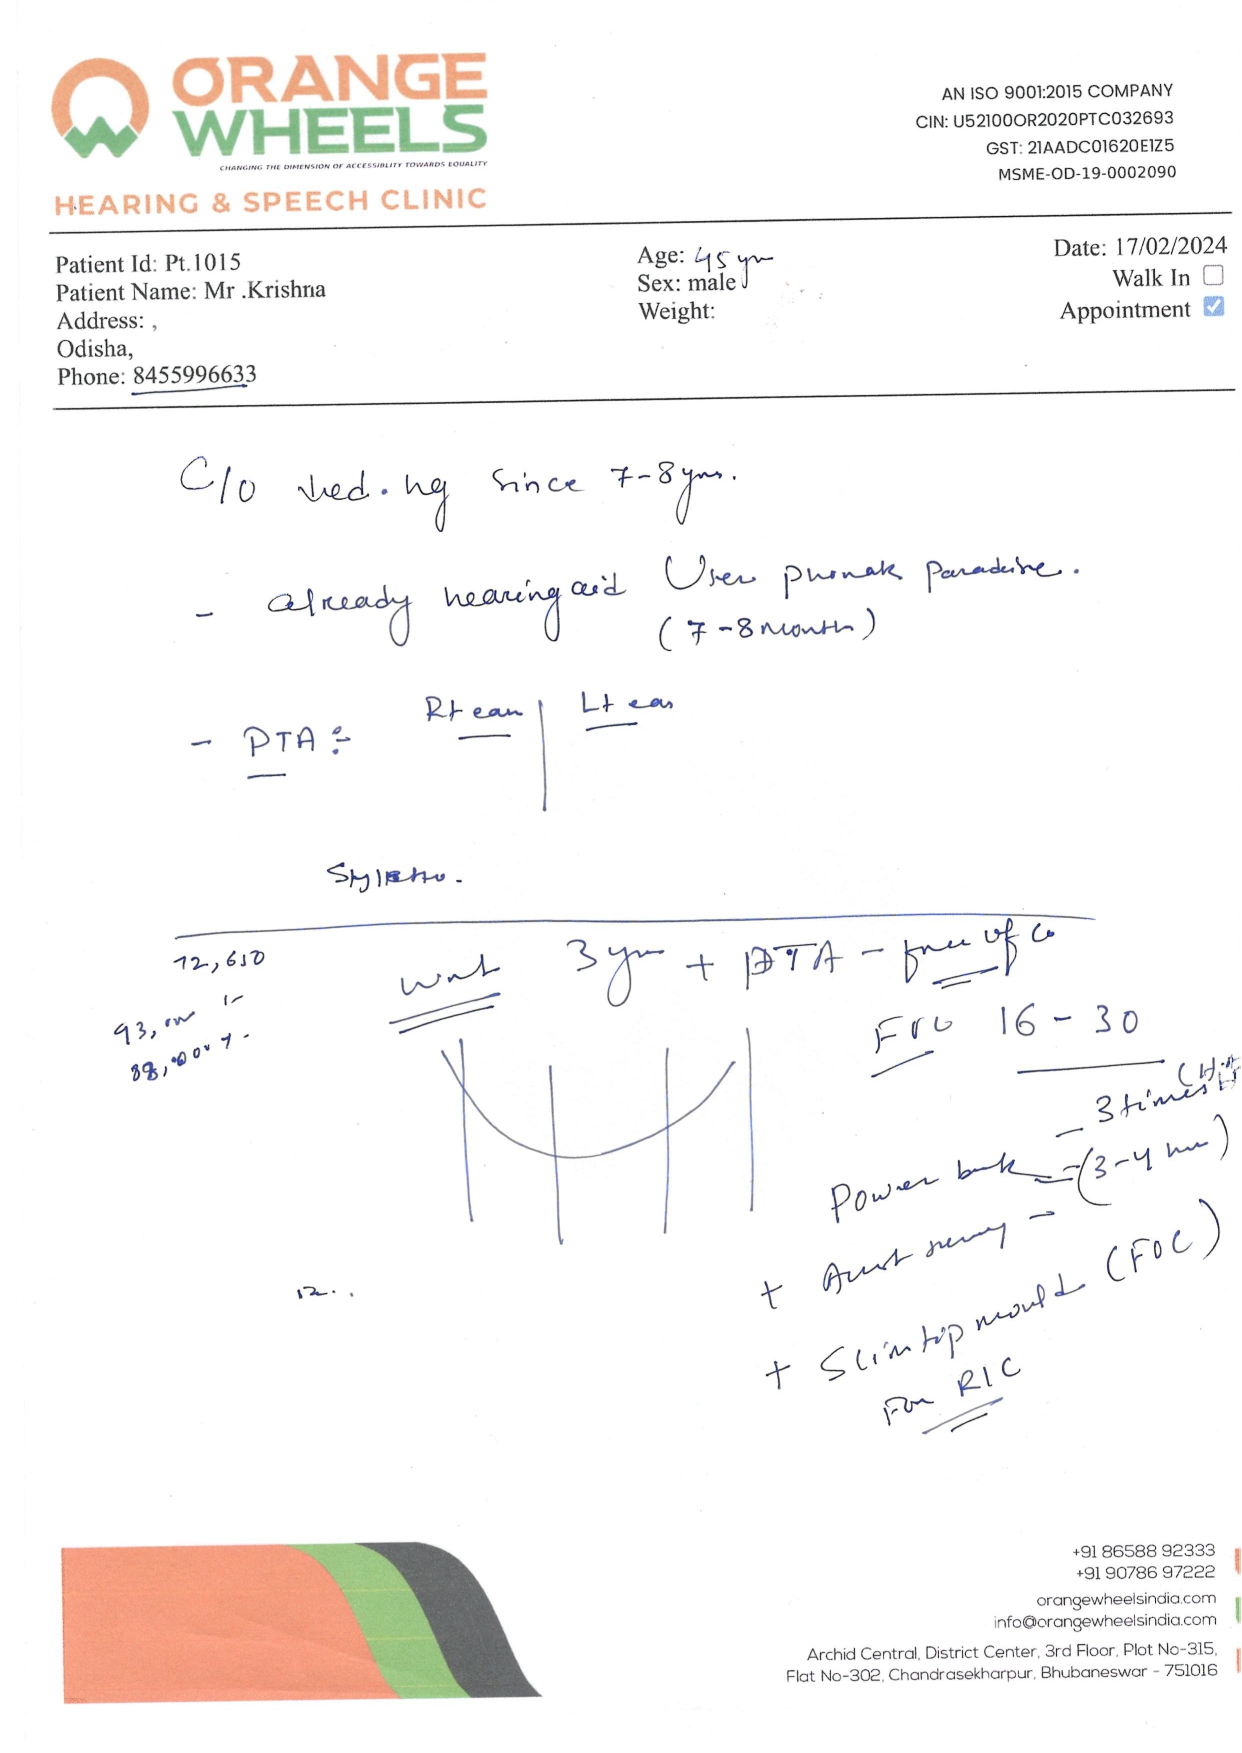 ORANGE
WHEELS
CHANGING THE DIMENSION OF ACCESSIBLITY TOWARDS EQUALITY
HEARING & SPEECH CLINIC
AN ISO 9001:2015 COMPANY
CIN: U52100OR2020PTC032693
GST: 21AADCO1620E1Z5
MSME-OD-19-0002090
Patient Id: Pt.1015
Patient Name: Mr .Krishna
Address: ,
Odisha,
Phone: 8455996633
Age: 45 yrs
Sex: male
Weight:
Date: 17/02/2024
Walk In
Appointment
C/o red. hg since 7-8 yrs.
- already hearing aid User phonak Paradise.
(7-8 month)
- PTA :- Rt ear | Lt ear
Styletto.
72,650
93,
88,
3 yrs + PTA - free of Co
16 - 30
- 3 times
Power bank = (3-4
+
+ Slimtip mould (FOC)
For RIC
12..
+91 86588 92333
+91 90786 97222
orangewheelsindia.com
info@orangewheelsindia.com
Archid Central, District Center, 3rd Floor, Plot No-315,
Flat No-302, Chandrasekharpur, Bhubaneswar - 751016